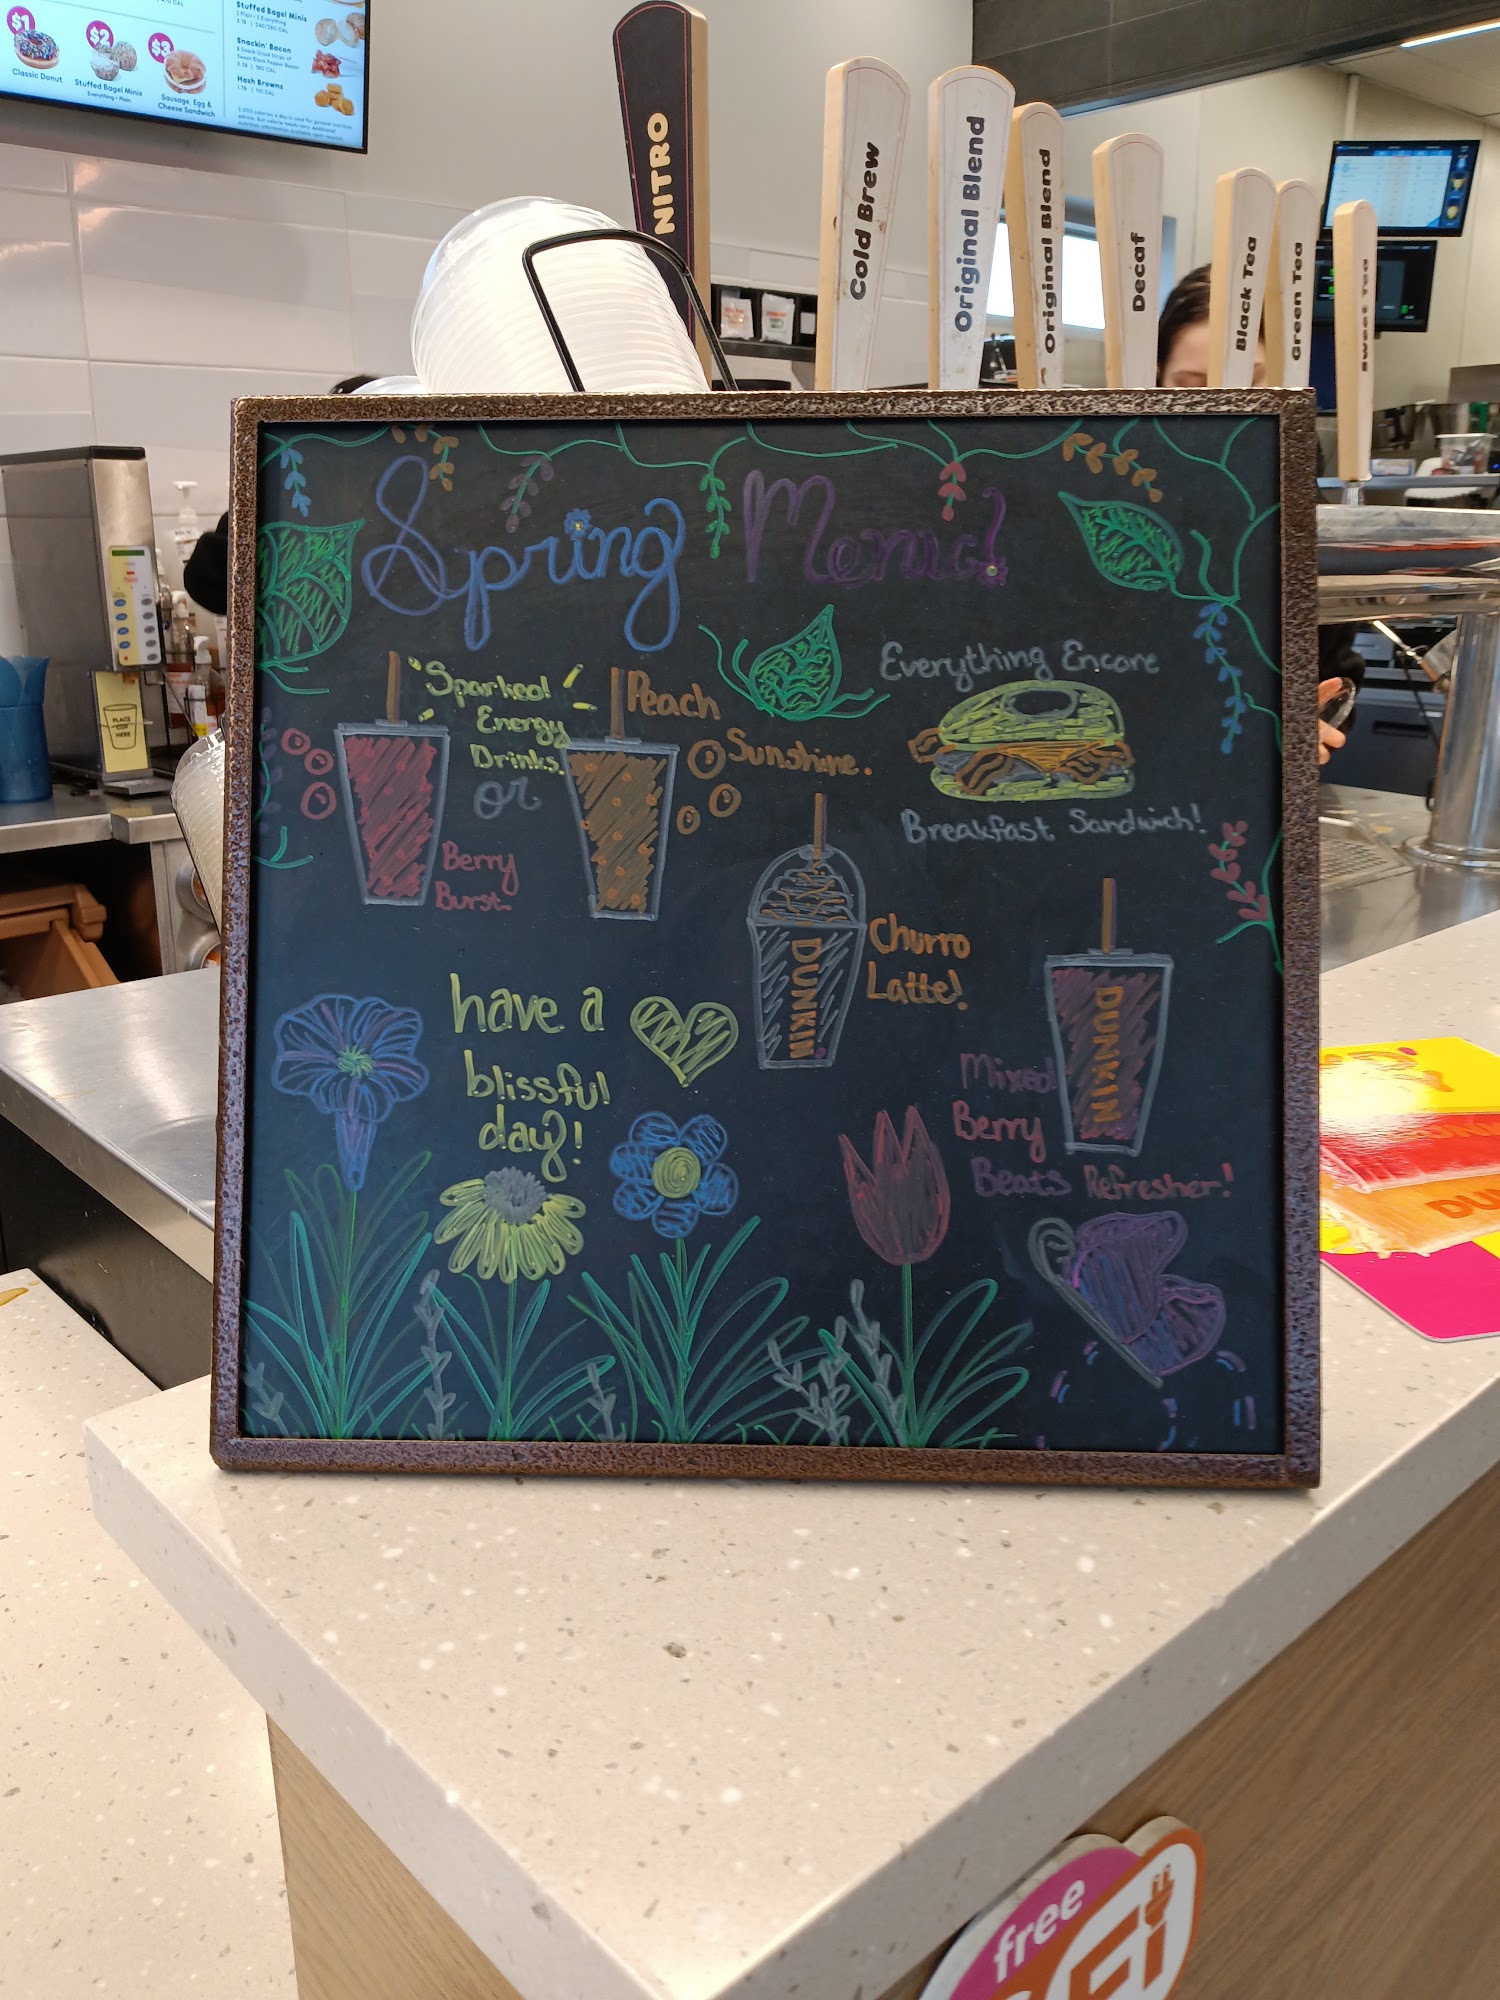 $1
Classic Donut
$2
Stuffed Bagel Minis
Everything • Plain
$3
Sausage, Egg &
Cheese Sandwich
Stuffed Bagel Minis
2 Plain • 2 Everything
Snackin' Bacon
Hash Browns
NITRO
Cold Brew
Original Blend
Original Blend
Decaf
Black Tea
Green Tea
Sweet Tea
PLACE
CUP
HERE
Spring Menu!
Sparked
Energy
Drinks.
or
Peach
Sunshine.
Berry
Burst.
Everything Encore
Breakfast Sandwich!
DUNKIN
Churro
Latte!
have a
blissful
day!
DUNKIN
Mixed
Berry
Beats Refresher!
free
Fi